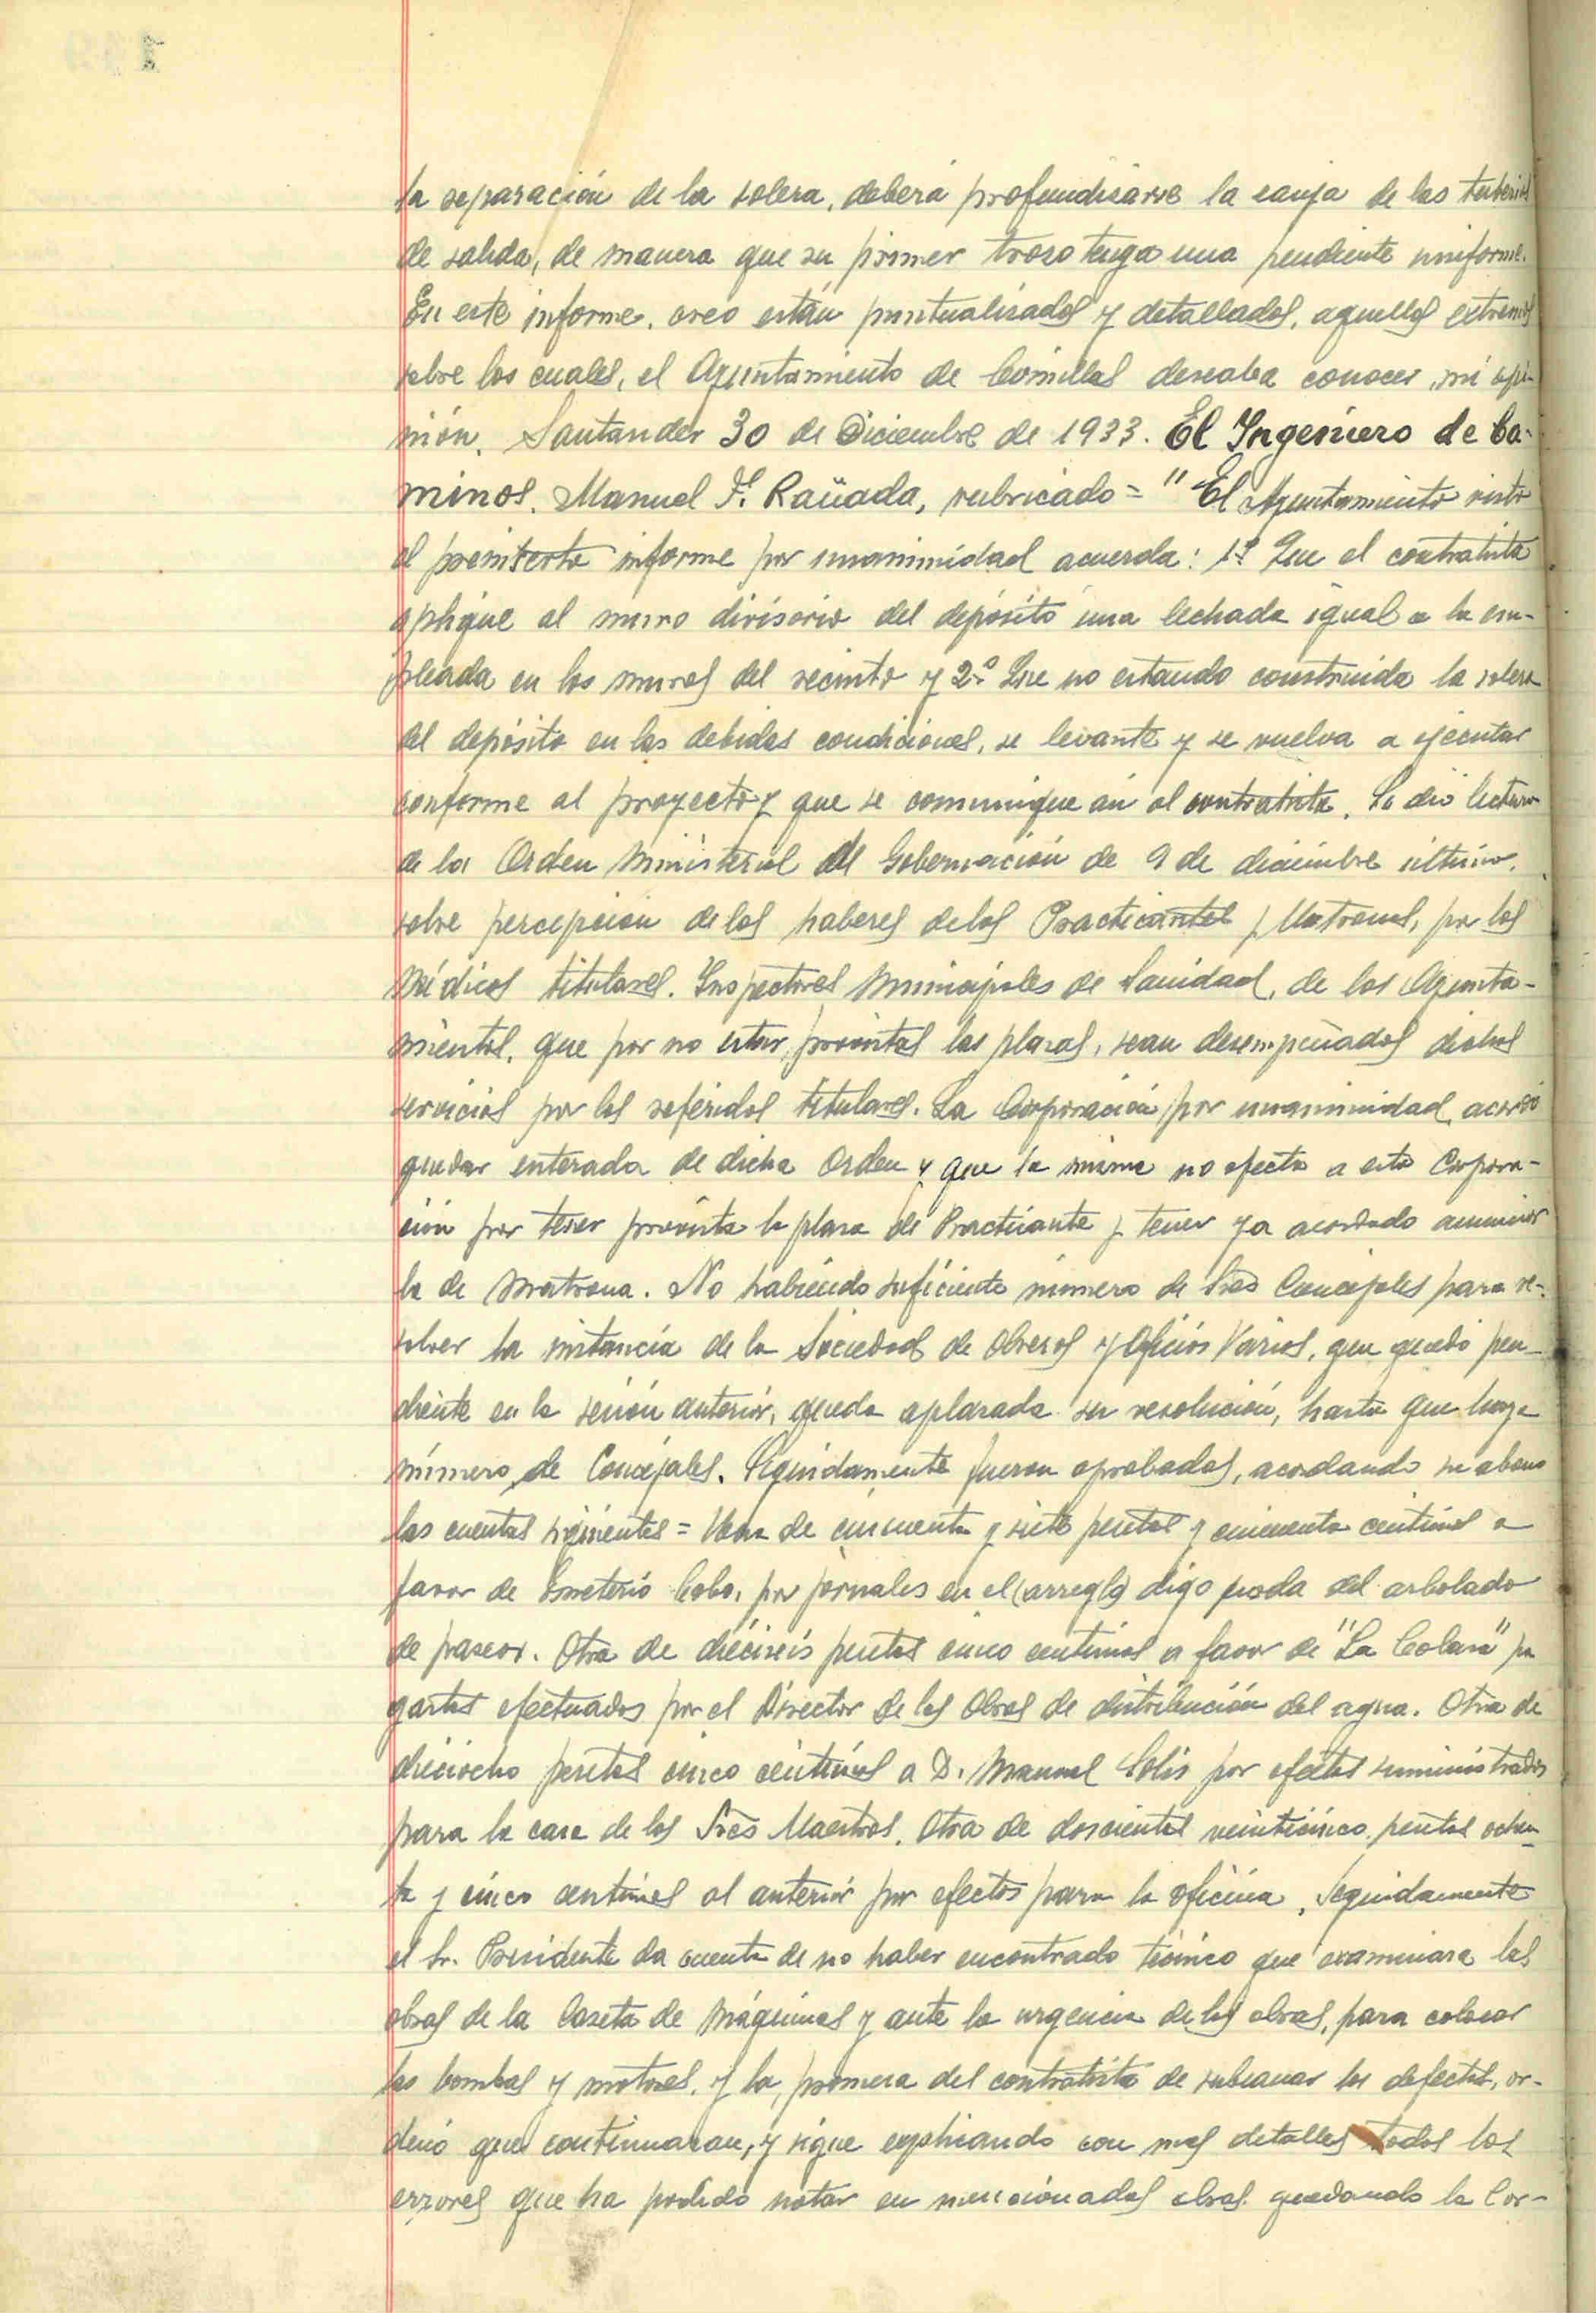 la separación de la solera, deberá profundizarse la zanja de las tuberías
de salida, de manera que su primer trozo tenga una pendiente uniforme.
En este informe, creo están puntualizados y detallados, aquellos extremos
sobre los cuales, el Ayuntamiento de Comillas deseaba conocer, mi opi-
nión. Santander 30 de Diciembre de 1933. El Ingeniero de Ca-
minos. Manuel F. Rañada, rubricado = " El Ayuntamiento visto
el preinserto informe por unanimidad acuerda: 1º Que el contratista
aplique al muro divisorio del depósito una lechada igual a la em-
pleada en los muros del recinto y 2º Que no estando construida la solera
del depósito en las debidas condiciones, se levante y se vuelva a ejecutar
conforme al proyecto y que se comunique así al contratista. Se dió lectura
de la Orden Ministerial de Gobernación de 9 de diciembre último,
sobre percepción de los haberes de los Practicantes y Matronas, por los
Médicos titulares. Inspectores Municipales de Sanidad, de los Ayunta-
mientos, que por no estar provistas las plazas, sean desempeñados dichos
servicios por los referidos titulares. La Corporación por unanimidad, acordó
quedar enterada de dicha Orden y que la misma no afecta a esta Corpora-
ción por tener provista la plaza de Practicante y tener ya acordado anunciar
la de Matrona. No habiendo suficiente número de Sres Concejales para re-
solver la instancia de la Sociedad de Obreros y Oficios Varios, que quedó pen-
diente en la sesión anterior, queda aplazada su resolución, hasta que haya
número de Concejales. Seguidamente fueron aprobadas, acordando su abono
las cuentas siguientes = Una de cincuenta y siete pesetas y cincuenta centimos a
favor de Emeterio Cobo, por jornales en el (arreglo) digo poda del arbolado
de paseos. Otra de dieciseis pesetas cinco centimos a favor de "La Colasa" por
gastos efectuados por el Director de las Obras de distribución del agua. Otra de
dieciocho pesetas cinco centimos a D. Manuel Solis por efectos suministrados
para la casa de los Sres Maestros. Otra de doscientas veinticinco pesetas ochen-
ta y cinco centimos al anterior por efectos para la oficina. Seguidamente
el Sr. Presidente da cuenta de no haber encontrado técnico que examinara las
obras de la Caseta de Máquinas y ante la urgencia de las obras, para colocar
las bombas y motores, y la promesa del contratista de subsanar los defectos, or-
denó que continuaran, y sigue explicando con mas detalles todos los
errores que ha podido notar en mencionadas obras quedando la Cor-